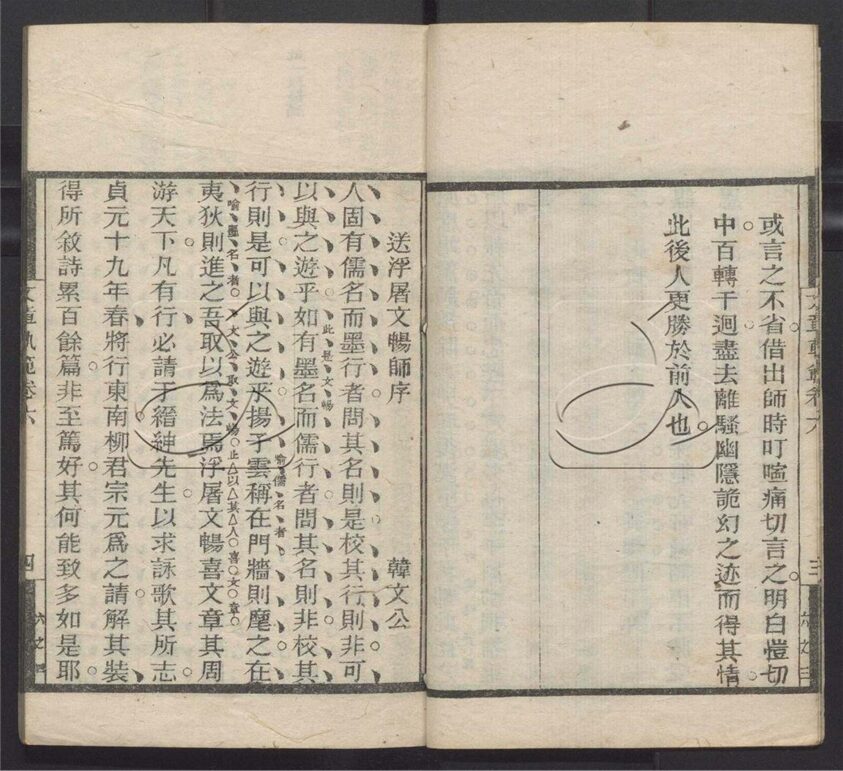 或言之不省借出師時叮嚀痛切言之明白愷切
中百轉千迴盡去離騷幽隱詭幻之迹而得其情
此後人更勝於前人也
文章軌範卷六
三
六之三
送浮屠文暢師序
韓文公
人固有儒名而墨行者問其名則是校其行則非可
以與之遊乎如有墨名而儒行者問其名則非校其
此是文暢
行則是可以與之遊乎揚子雲稱在門牆則麾之在
喻儒名者
喻墨名者
夷狄則進之吾取以爲法焉浮屠文暢喜文章其周
文公取文暢止以其人喜文章
游天下凡有行必請于縉紳先生以求詠歌其所志
貞元十九年春將行東南柳君宗元爲之請解其裝
得所敘詩累百餘篇非至篤好其何能致多如是耶
文章軌範卷六
四
六之四